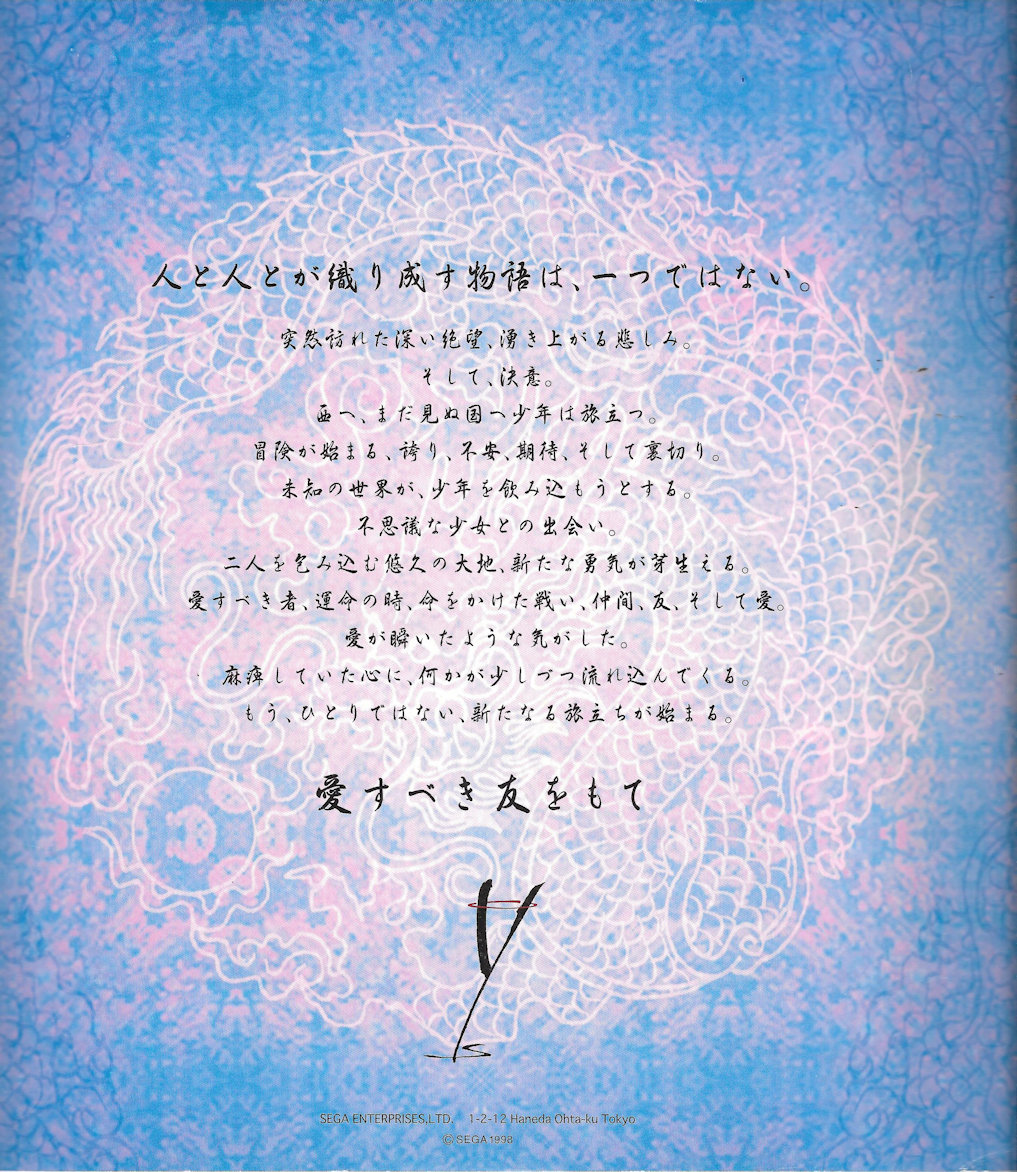 人と人とが織り成す物語は、一つではない。
突然訪れた深い絶望、湧き上がる悲しみ。
そして、決意。
西へ、まだ見ぬ国へ少年は旅立つ。
冒険が始まる、誇り、不安、期待、そして裏切り。
未知の世界が、少年を飲み込もうとする。
不思議な少女との出会い。
二人を包み込む悠久の大地、新たな勇気が芽生える。
愛すべき者、運命の時、命をかけた戦い、仲間、友、そして愛。
愛が瞬いたような気がした。
麻痺していた心に、何かが少しづつ流れ込んでくる。
もう、ひとりではない、新たなる旅立ちが始まる。
愛すべき友をもて
SEGA ENTERPRISES,LTD. 1-2-12 Haneda Ohta-ku Tokyo
© SEGA 1998